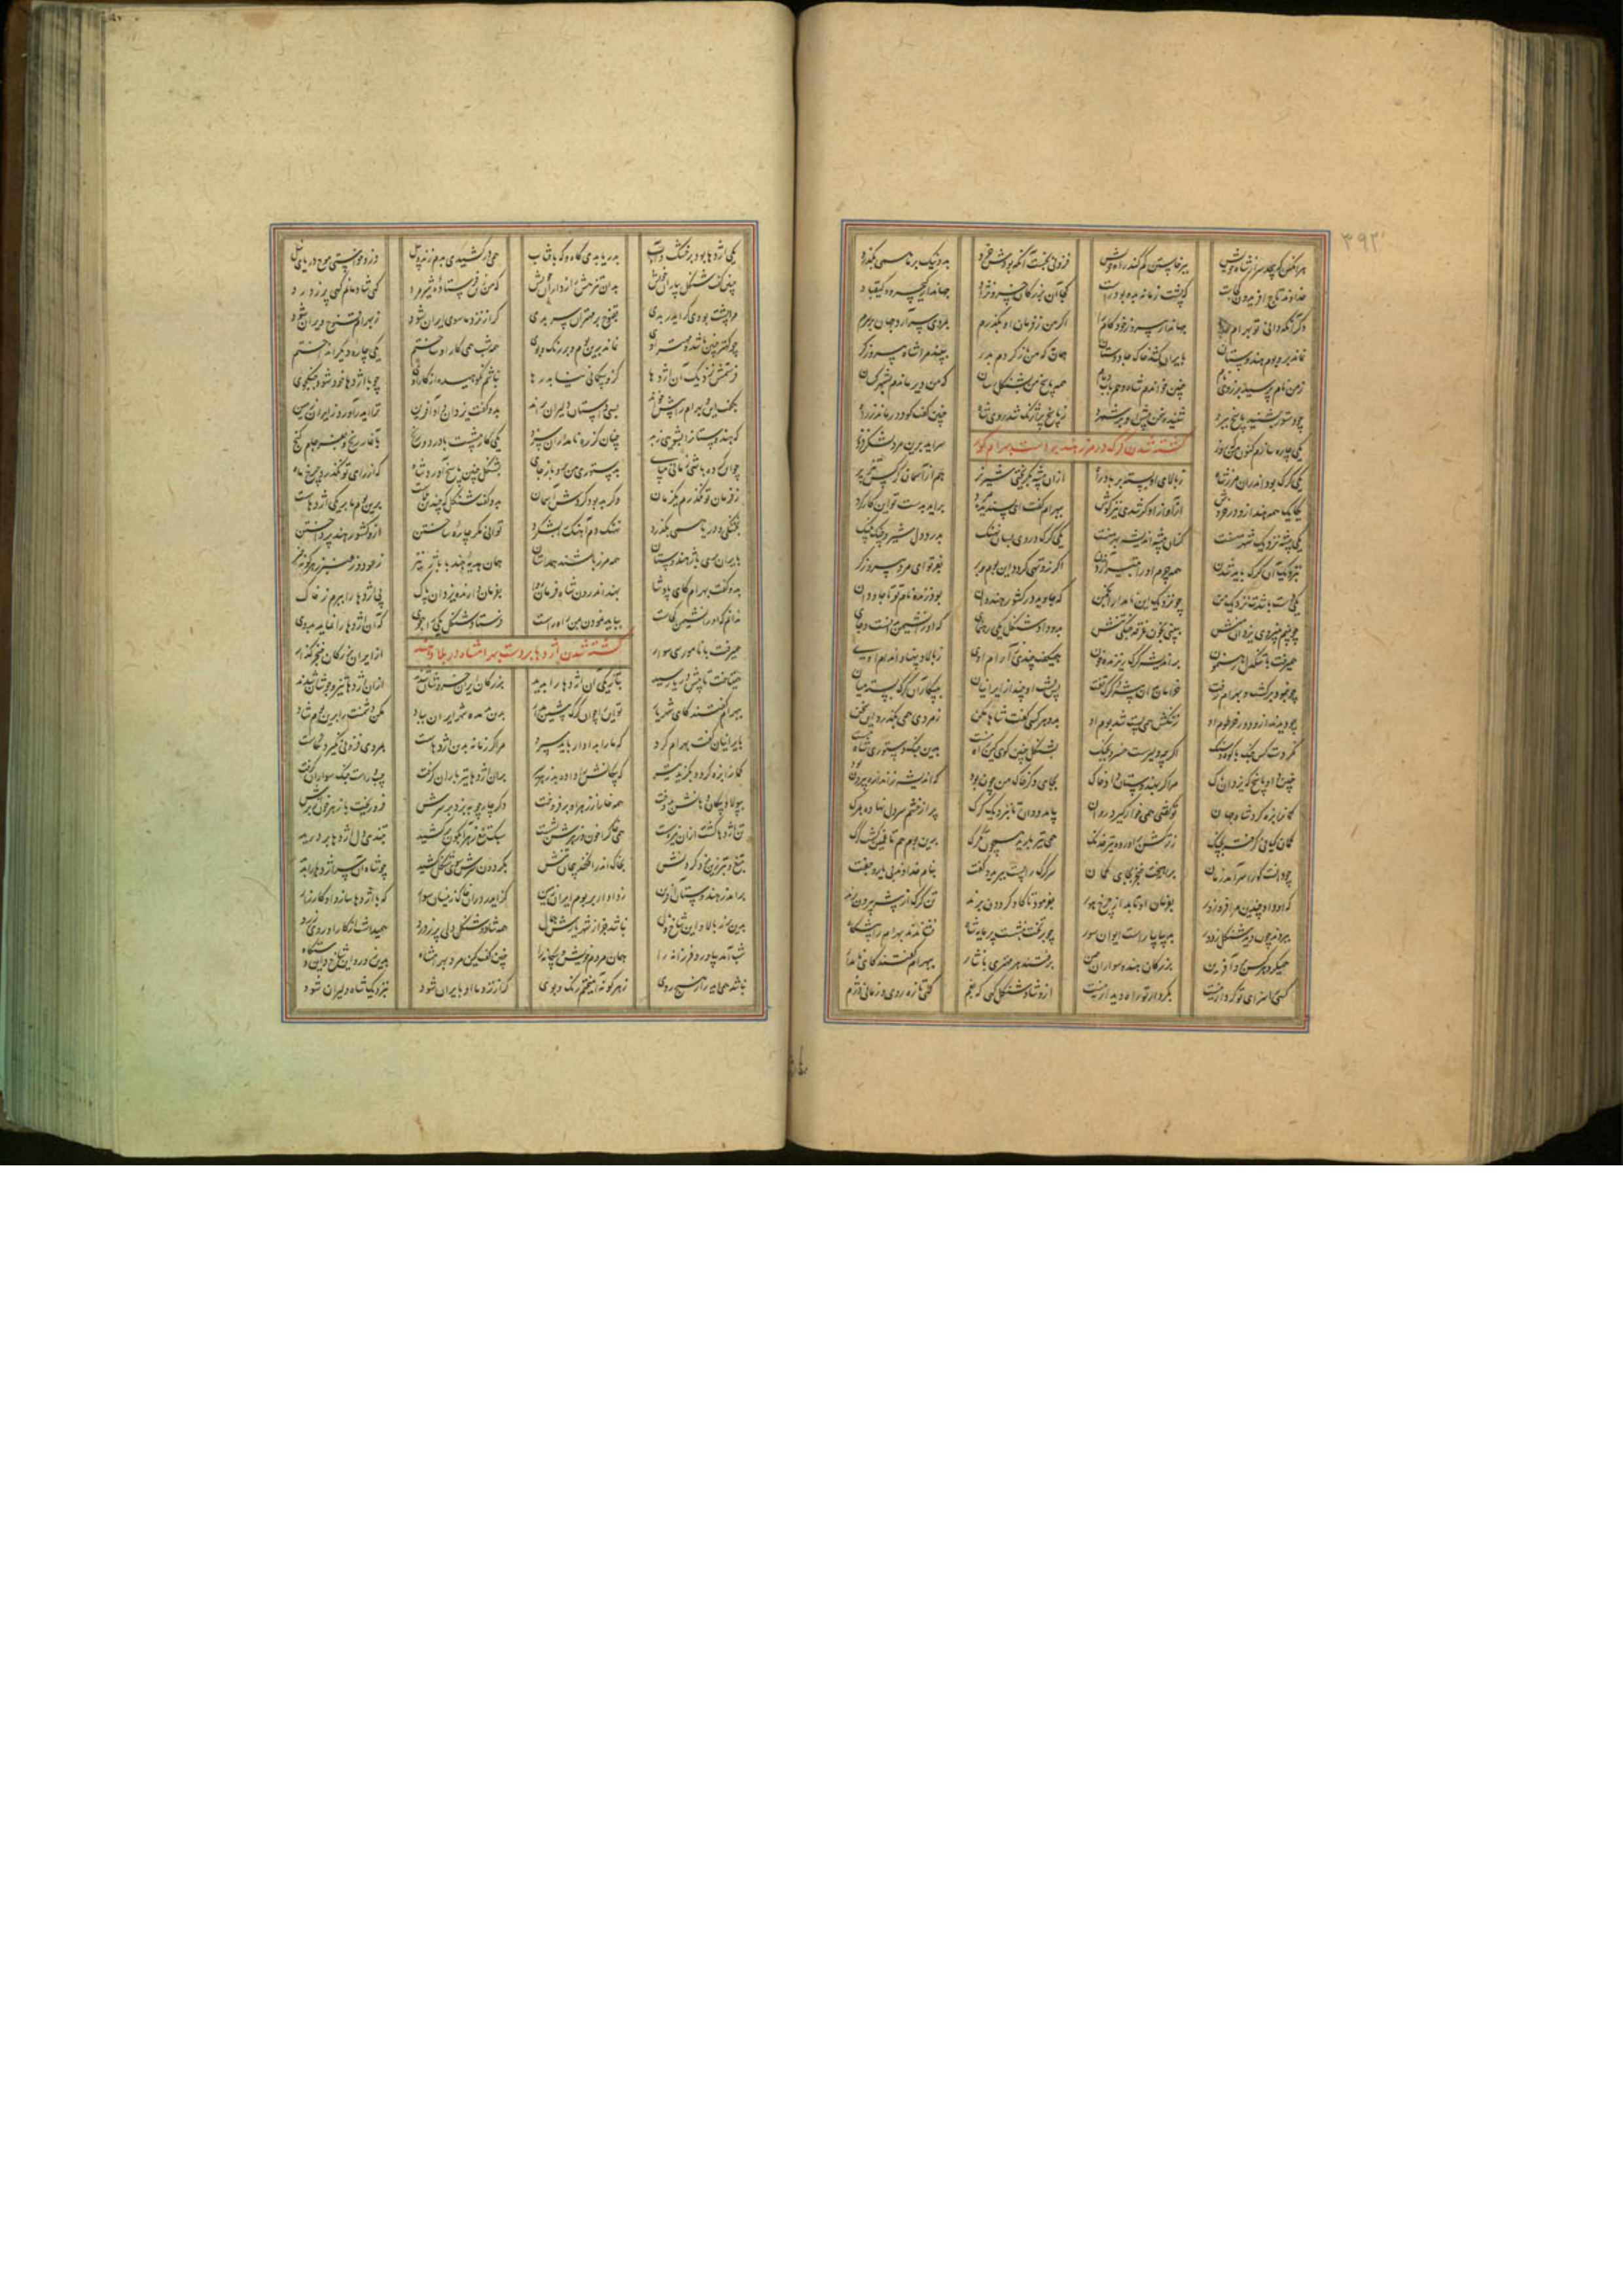 هر آنکس که پیچد سر از شاه خویش ببرخاستن گم کند راه خویش فزونی نجست آنکه بودش خرد بد و نیک بر ما همی بگذرد
خداوند تاج آفریدون کجاست که پشت زمانه بدو بود راست کجا آن بزرگان خسرو نژاد جهاندار کیخسرو و کیقباد
دگر آنکه دانی تو بهرام را جهاندار پیروز خودکام را اگر من ز فرمان او بگذرم بمردی سرآرد جهان بر سرم
نماند بر و بوم هندوستان بایران کشد خاک جادوستان همان به که من باز گردم بدر ببیند مرا شاه پیروزگر
ز من نام پرسید برزوی نام چنین خواندم شاه و هم باب و مام همه پاسخ من بشنگل رسان که من دیر ماندم بشهر کسان
چو دستور بشنید پاسخ ببرد شنیده سخن پیش او برشمرد ز پاسخ پر آژنگ شد روی شاه چنین گفت کو دور ماند ز راه
یکی چاره سازم کنون من که روز سرآید برین مرد لشکرفروز
کشته شدن کرک در مرز هند بر دست بهرام گور
یکی کرک بود اندران مرز شاه ز بالای او بسته بر باد راه ازان بیشه بگریختی شیر نر هم از آسمان کرکس تیزپر
یکایک همه هند ازو در خروش از آواز او کر شدی تیز گوش ببهرام گفت ای پسندیده مرد برآید بدست تو این کارکرد
یکی بیشه نزدیک شهر منست کزان بیشه اندیشه بهر منست یکی کرک در وی بسان نهنگ بدرد دل شیر و چنگ پلنگ
بنزدیک آن کرک باید شدن همه چرم او را بتیر آژدن اگر زو تهی گردد این بوم و بر بفر تو ای مرد پیروزگر
یکی دست باشدت نزدیک من چو نزدیک این نامدار انجمن که جاوید در کشور هندوان بود زنده نام تو تا جاودان
چو بینم بنیروی یزدان تنش ببینی بخون غرقه جنگی تنش بدو داد شنگل یکی رهنمای که او را نشیمن بدانست و جای
همیرفت با نیکدل رهنمون بدان بیشه کرک ریزنده خون همیگفت چندی ز آرام اوی ز بالا و پهنا و اندام اوی
چو بنمود برگشت و بهرام رفت خرامان بدان بیشه کرک تفت پس پشت او چند از ایرانیان به پیکار آن کرک بسته میان
چو دیدند از دور خرطوم او ز تنگش همی پست شد بوم او بدو هر کسی گفت شاها مکن ز مردی همی بگذرد این سخن
نکردست کس جنگ با کوه و سنگ اگر چه دلیرست خسرو بجنگ بشنگل چنین گوی کین راه نیست بدین جنگ دستوری شاه نیست
چنین داد پاسخ که یزدان پاک مرا گر بهندوستان داد خاک بجای دگر خاک من چون بود که اندیشه ز اندازه بیرون بود
کمانرا بزه کرد شاه جوان تو گفتی همی خوار گیرد روان بیامد دوان تا بنزدیک کرک پر از خشم سر دل نهاده بمرگ
کمان کیانی گرفته بچنگ ز ترکش برآورد تیر خدنگ همی تیر بارید همچون تگرگ برین هم تا غمی گشت کرک
چو دانست کو را سرآمد زمان برآهیخت خنجر بجای کمان سر کرک را پست ببرید و گفت بنام خداوند بی یار و جفت
که او داد چندین مرا فر و زور بفرمان او تابد از چرخ هور بفرمود تا گاو گردون برند تن کرک از بیشه بیرون برند
ببردند چون دید شنگل ز دور بدیبا بیاراست ایوان سور چو بر تخت بنشست پرمایه شاه نشاندند بهرام را پیشگاه
همی کرد هر کس برو آفرین بزرگان هند و سواران چین برفتند هر مهتری با نثار ببهرام گفتند کای نامدار
کسی را سزای تو کردار نیست بکردار تو راه دیدار نیست ازو شاد شنگل گهی که بغم گهی تازه روی و زمانی دژم
یکی اژدها بود بر خشک و آب بدریا بدی گاه و گه بافتاب همی درکشیدی بدم ژنده پیل وزو خاستی موج دریای نیل
چنین گفت شنگل بیاران خویش بدان تیزهش رازداران خویش که من زین فرستاده شیرمرد گهی شادمانم گهی پر ز درد
مرا پشت بودی گر ایدر بدی بقنوج بر مهتران سر بدی گر از نزد ما سوی ایران شود ز بهرام قنوج ویران شود
چو کهتر چنین باشد و مهتر اوی نماند برین بوم و بر رنگ و بوی همه شب همی کار او ساختم یکی چاره دیگر انداختم
فرستمش نزدیک آن اژدها کزو بیگمانی نیابد رها نباشم نکوهیده از کار اوی چو با اژدها خود شود جنگجوی
بگفت این و بهرام را پیش خواند بسی داستان دلیران براند بدو گفت یزدان پاک آفرین ترا ایدر آورد ز ایران زمین
که هندوستان را بشویی ز بد چنان کز ره نامداران سزد یکی کار پیشست با درد و رنج بآغاز رنج و بفرجام گنج
چو این کرده باشی زمانی مپای بخشنودی من برو باز جای بشنگل چنین پاسخ آورد شاه که از رای تو نگذرم چرخ ماه
ز فرمان تو نگذرم یکزمان وگر بد بود گردش آسمان بدو گفت شنگل که چندین بلاست برین بوم ما بر یکی اژدهاست
بخشکی و دریا همی بگذرد نهنگ دم آهنگ را بشکرد توانی مگر چاره ساختن ازو کشور هند پرداختن
بایران بری باژ هندوستان همه مرز باشند همداستان همان هدیه هند با باژ نیز ز عود و ز عنبر ز هر گونه چیز
بدو گفت بهرام کای پادشا بهند اندرون شاه فرمانروا بفرمان دارنده یزدان پاک پی اژدها را ببرم ز خاک
ندانم که او را نشیمن کجاست بباید نمودن بمن راه راست فرستاد شنگل یکی راهجوی که آن اژدها را نماید بدوی
همیرفت با نامور سی سوار از ایران بزرگان خنجرگذار
کشته شدن اژدها بر دست بهرامشاه در بلاد هند
همیتاخت تا پیش دریا رسید بتاریکی آن اژدها را بدید بزرگان ایران خروشان شدند ازان اژدها نیز جوشان شدند
ببهرام گفتند کای شهریار تو این را چون کرک پیشین مدار بدین مده شهر ایران بباد مکن دشمنت را برین بوم شاد
بایرانیان گفت بهرام گرد که ما را بدادار باید سپرد مرا گر زمانه بدین اژدهاست بمردی فزونی نگیرد نکاست
کمانرا بزه کرد و بگزید تیر که پیکانش را داده بد زهر و شیر بران اژدها تیرباران گرفت چپ و راست جنگ سواران گرفت
بپولاد پیکان دهانش بدوخت همه خار زان زهر او برفروخت دگر چار چوبه بزد بر سرش فرو ریخت با زهر خون از برش
تن اژدها گشت ازان تیر سست همی خاک را خون زهرش بشست سبک تیغ زهرآبگون برکشید بتندی دل اژدها بردرید
بتیغ و تبرزین بزد گردنش بخاک اندر افگند بیجان تنش بگردون سرش سوی شنگل کشید چو شاه آن سر اژدها را بدید
برآمد ز هندوستان آفرین ز دادار بر بوم ایران زمین که زاید بران خاک زینسان سوار که با اژدها سازد او کارزار
برین برز بالا و این شاخ و یال نباشد جز از شهریارش همال همه شاد و شنگل دلی پر ز درد همیداشت از کار او روی زرد
شب آمد بیاورد فرزانه را همان مردم خویش و بیگانه را چنین گفت کین مرد بهرامشاه بدین زور و این شاخ و این دستگاه
نباشد همی ایدر از هیچ روی ز هر گونه آمیختم رنگ و بوی گر از نزد ما او بایران شود بنزدیک شاه دلیران شود